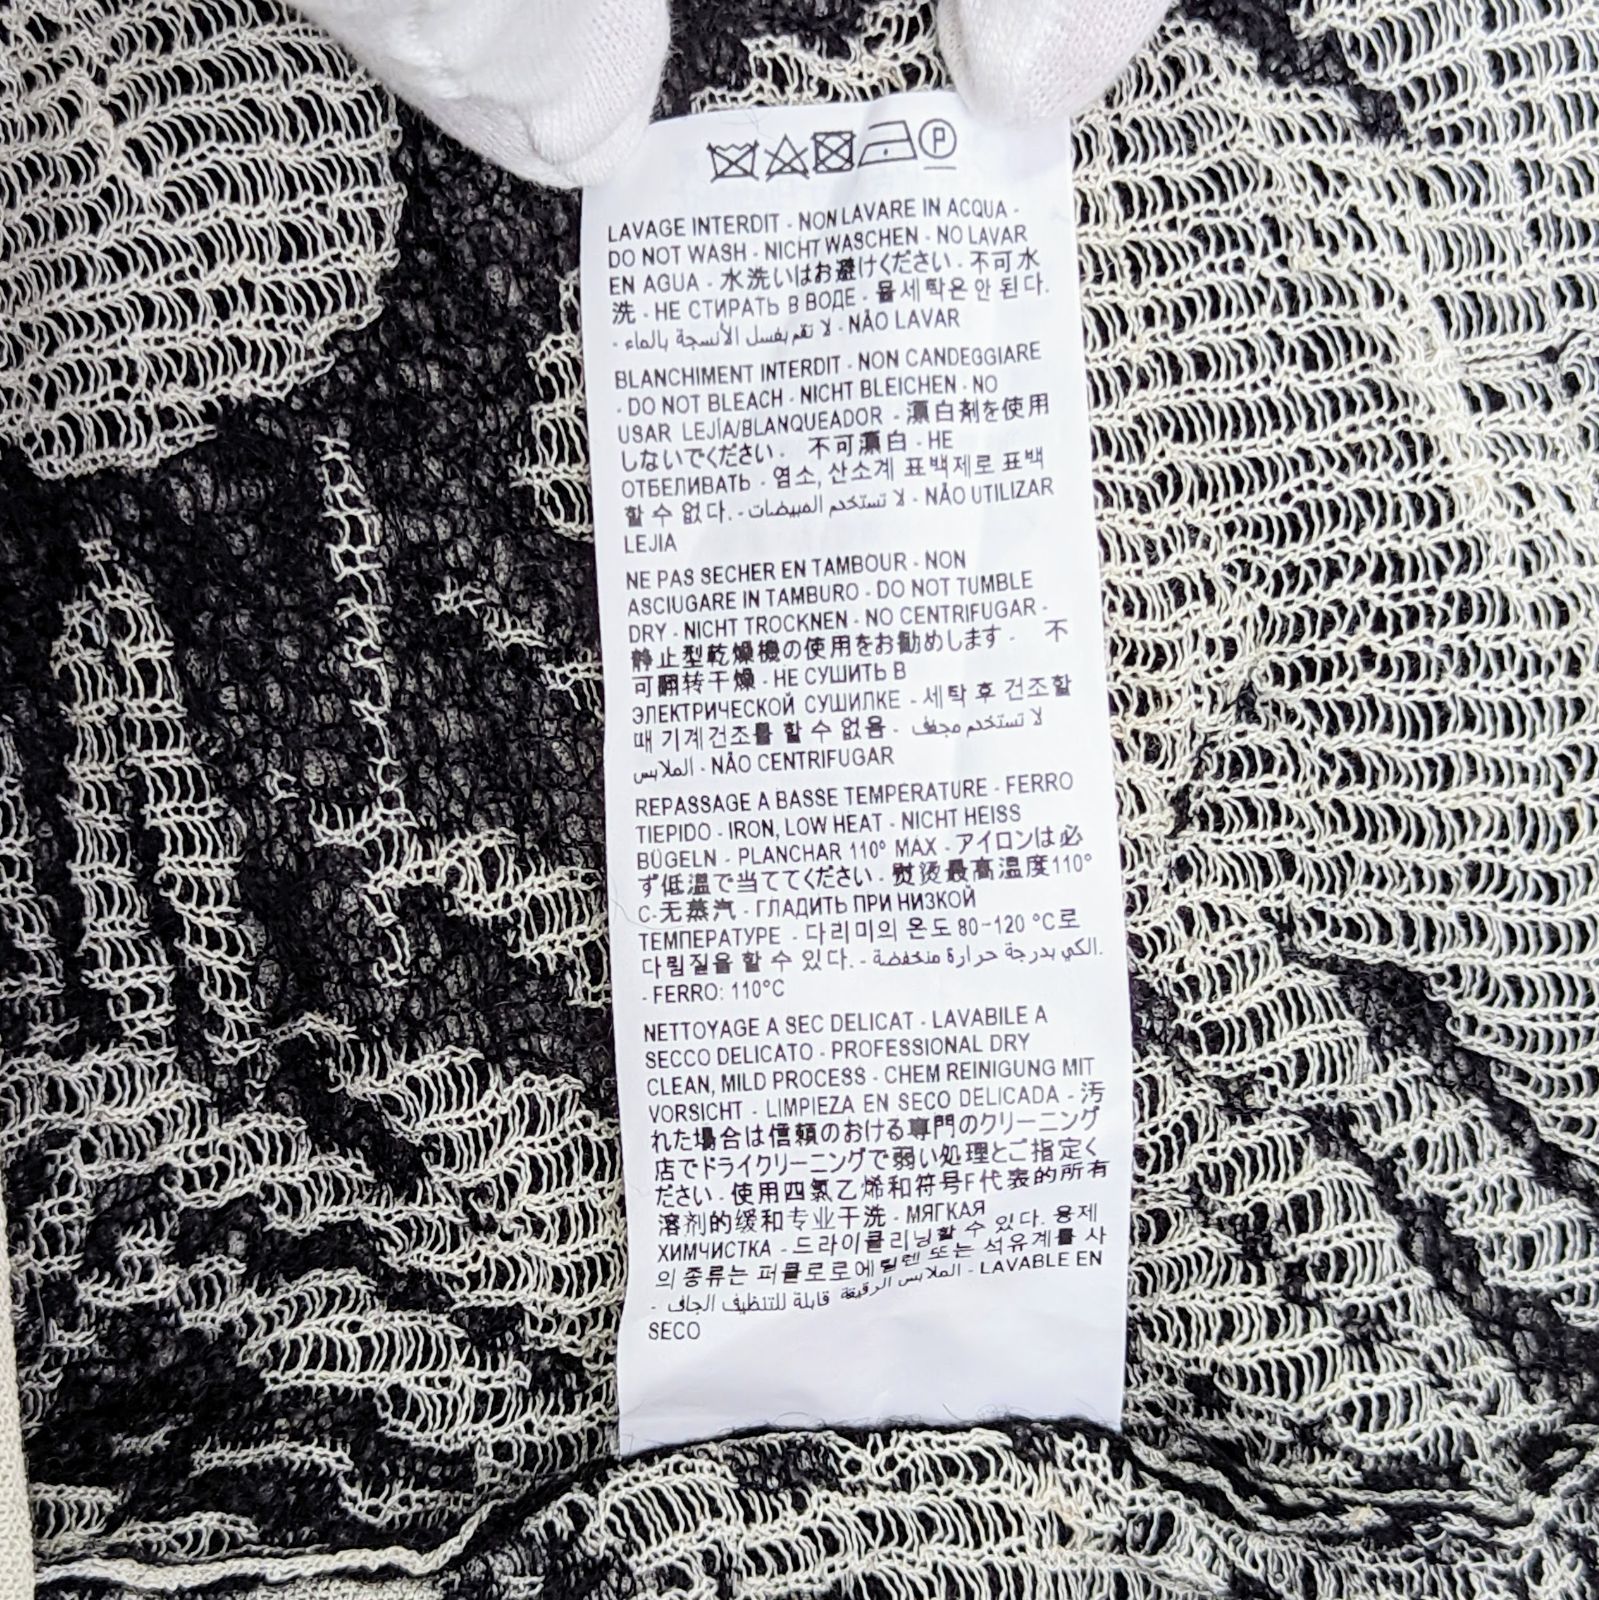 P
LAVAGE INTERDIT - NON LAVARE IN ACQUA -
DO NOT WASH - NICHT WASCHEN - NO LAVAR
EN AGUA - 水洗いはお避けください - 不可水
洗 - НЕ СТИРАТЬ В ВОДЕ - 물세탁은 안 된다.
- لا تقم بغسل الأنسجة بالماء - NÃO LAVAR
BLANCHIMENT INTERDIT - NON CANDEGGIARE
- DO NOT BLEACH - NICHT BLEICHEN - NO
USAR LEJÍA/BLANQUEADOR - 漂白剤を使用
しないでください - 不可漂白 - НЕ
ОТБЕЛИВАТЬ - 염소, 산소계 표백제로 표백
할 수 없다. - لا تستخدم المبيضات - NÃO UTILIZAR
LEJIA
NE PAS SECHER EN TAMBOUR - NON
ASCIUGARE IN TAMBURO - DO NOT TUMBLE
DRY - NICHT TROCKNEN - NO CENTRIFUGAR -
静止型乾燥機の使用をお勧めします - 不
可翻转干燥 - НЕ СУШИТЬ В
ЭЛЕКТРИЧЕСКОЙ СУШИЛКЕ - 세탁 후 건조할
때 기계건조를 할 수 없음 - لا تستخدم مجفف
الملابس - NÃO CENTRIFUGAR
REPASSAGE A BASSE TEMPERATURE - FERRO
TIEPIDO - IRON, LOW HEAT - NICHT HEISS
BÜGELN - PLANCHAR 110° MAX - アイロンは必
ず低温で当ててください - 熨烫最高温度110°
C-无蒸汽 - ГЛАДИТЬ ПРИ НИЗКОЙ
ТЕМПЕРАТУРЕ - 다리미의 온도 80~120 °C로
다림질을 할 수 있다. - الكي بدرجة حرارة منخفضة.
- FERRO: 110°C
NETTOYAGE A SEC DELICAT - LAVABILE A
SECCO DELICATO - PROFESSIONAL DRY
CLEAN, MILD PROCESS - CHEM REINIGUNG MIT
VORSICHT - LIMPIEZA EN SECO DELICADA - 汚
れた場合は信頼のおける専門のクリーニング
店でドライクリーニングで弱い処理とご指定く
ださい - 使用四氯乙烯和符号F代表的所有
溶剂的缓和专业干洗 - МЯГКАЯ
ХИМЧИСТКА - 드라이클리닝할 수 있다. 용제
의 종류는 퍼클로로에틸렌 또는 석유계를 사
- الملابس الرقيقة قابلة للتنظيف الجاف - LAVABLE EN
SECO